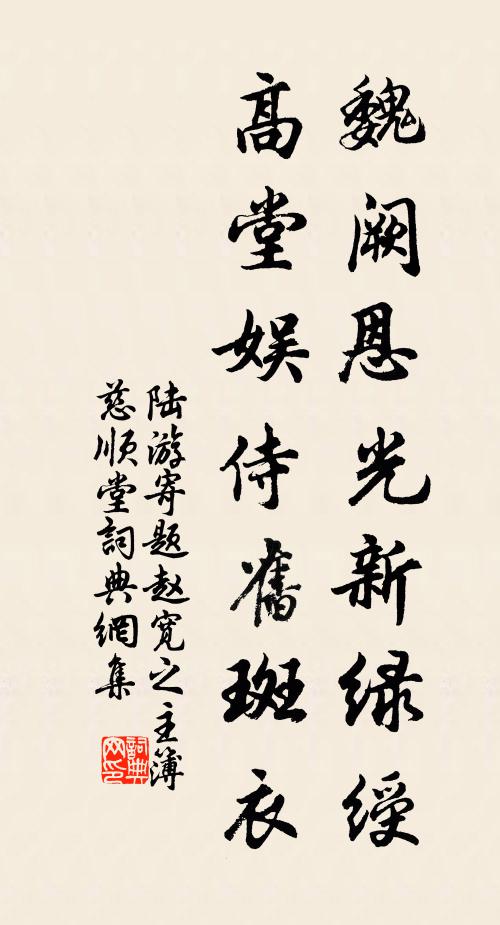 魏阙恩光新绿绶
高堂娱侍旧斑衣
陆游寄题赵宽之主簿
慈顺堂词典網集
詞典网印